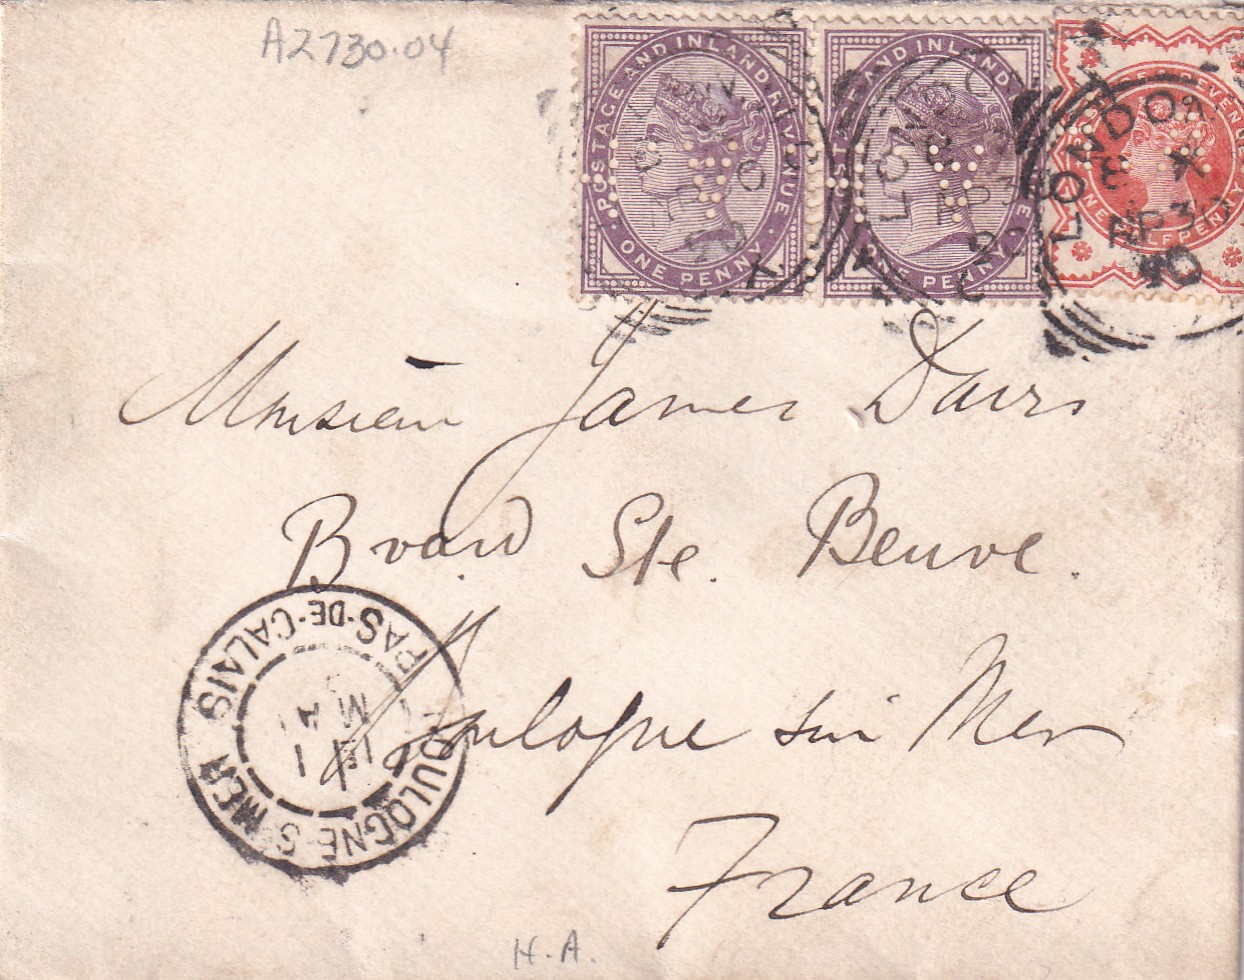 A2730.04
POSTAGE AND INLAND REVENUE
ONE PENNY
AND INLAND
ONE PENNY
LONDON
AP 30
90
LONDON
AP 3
90
REVENUE
HALFPENNY
Monsieur James Davis
Bvard Ste. Beuve.
Boulogne sur Mer
France
BOULOGNE-S-MER
PAS-DE-CALAIS
1
MAI
H.A.